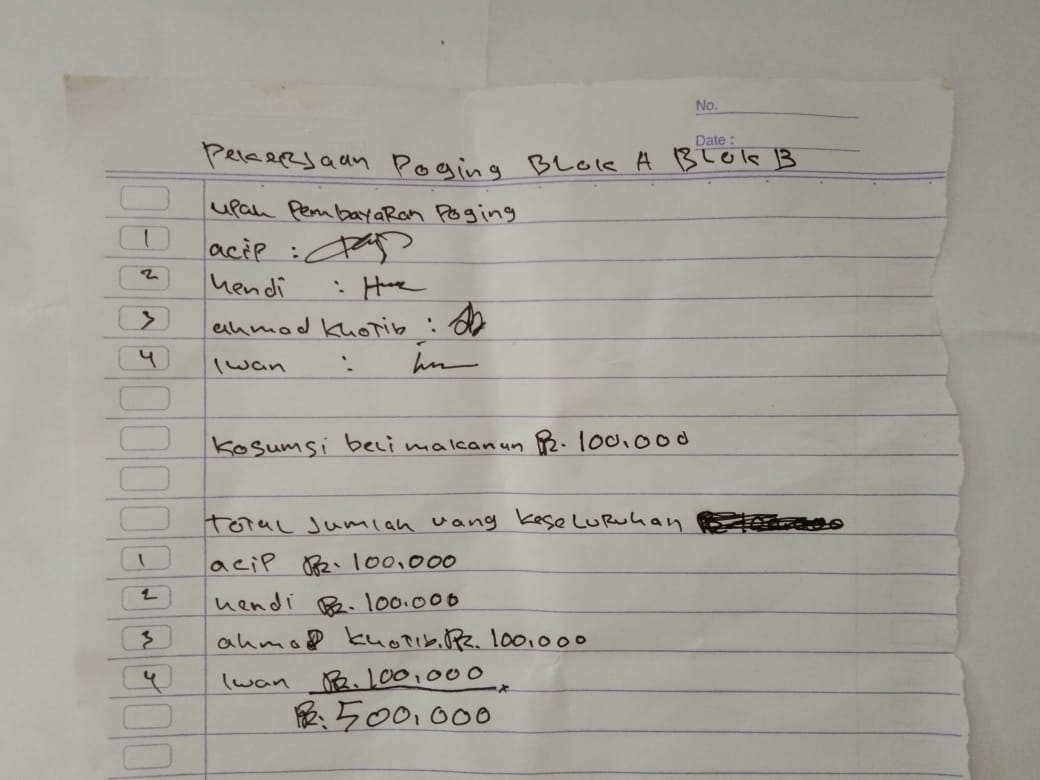 No.
Date :
Pekerjaan Poging Blok A Blok B
upah Pembayaran Poging
1 acip :
2 hendi :
3 ahmad khotib :
4 Iwan :
Kosumsi beli makanan Rp. 100.000
Total Jumlah uang keseluruhan
1 acip Rp. 100.000
2 hendi Rp. 100.000
3 ahmad khotib. Rp. 100.000
4 Iwan Rp. 100.000
Rp: 500.000